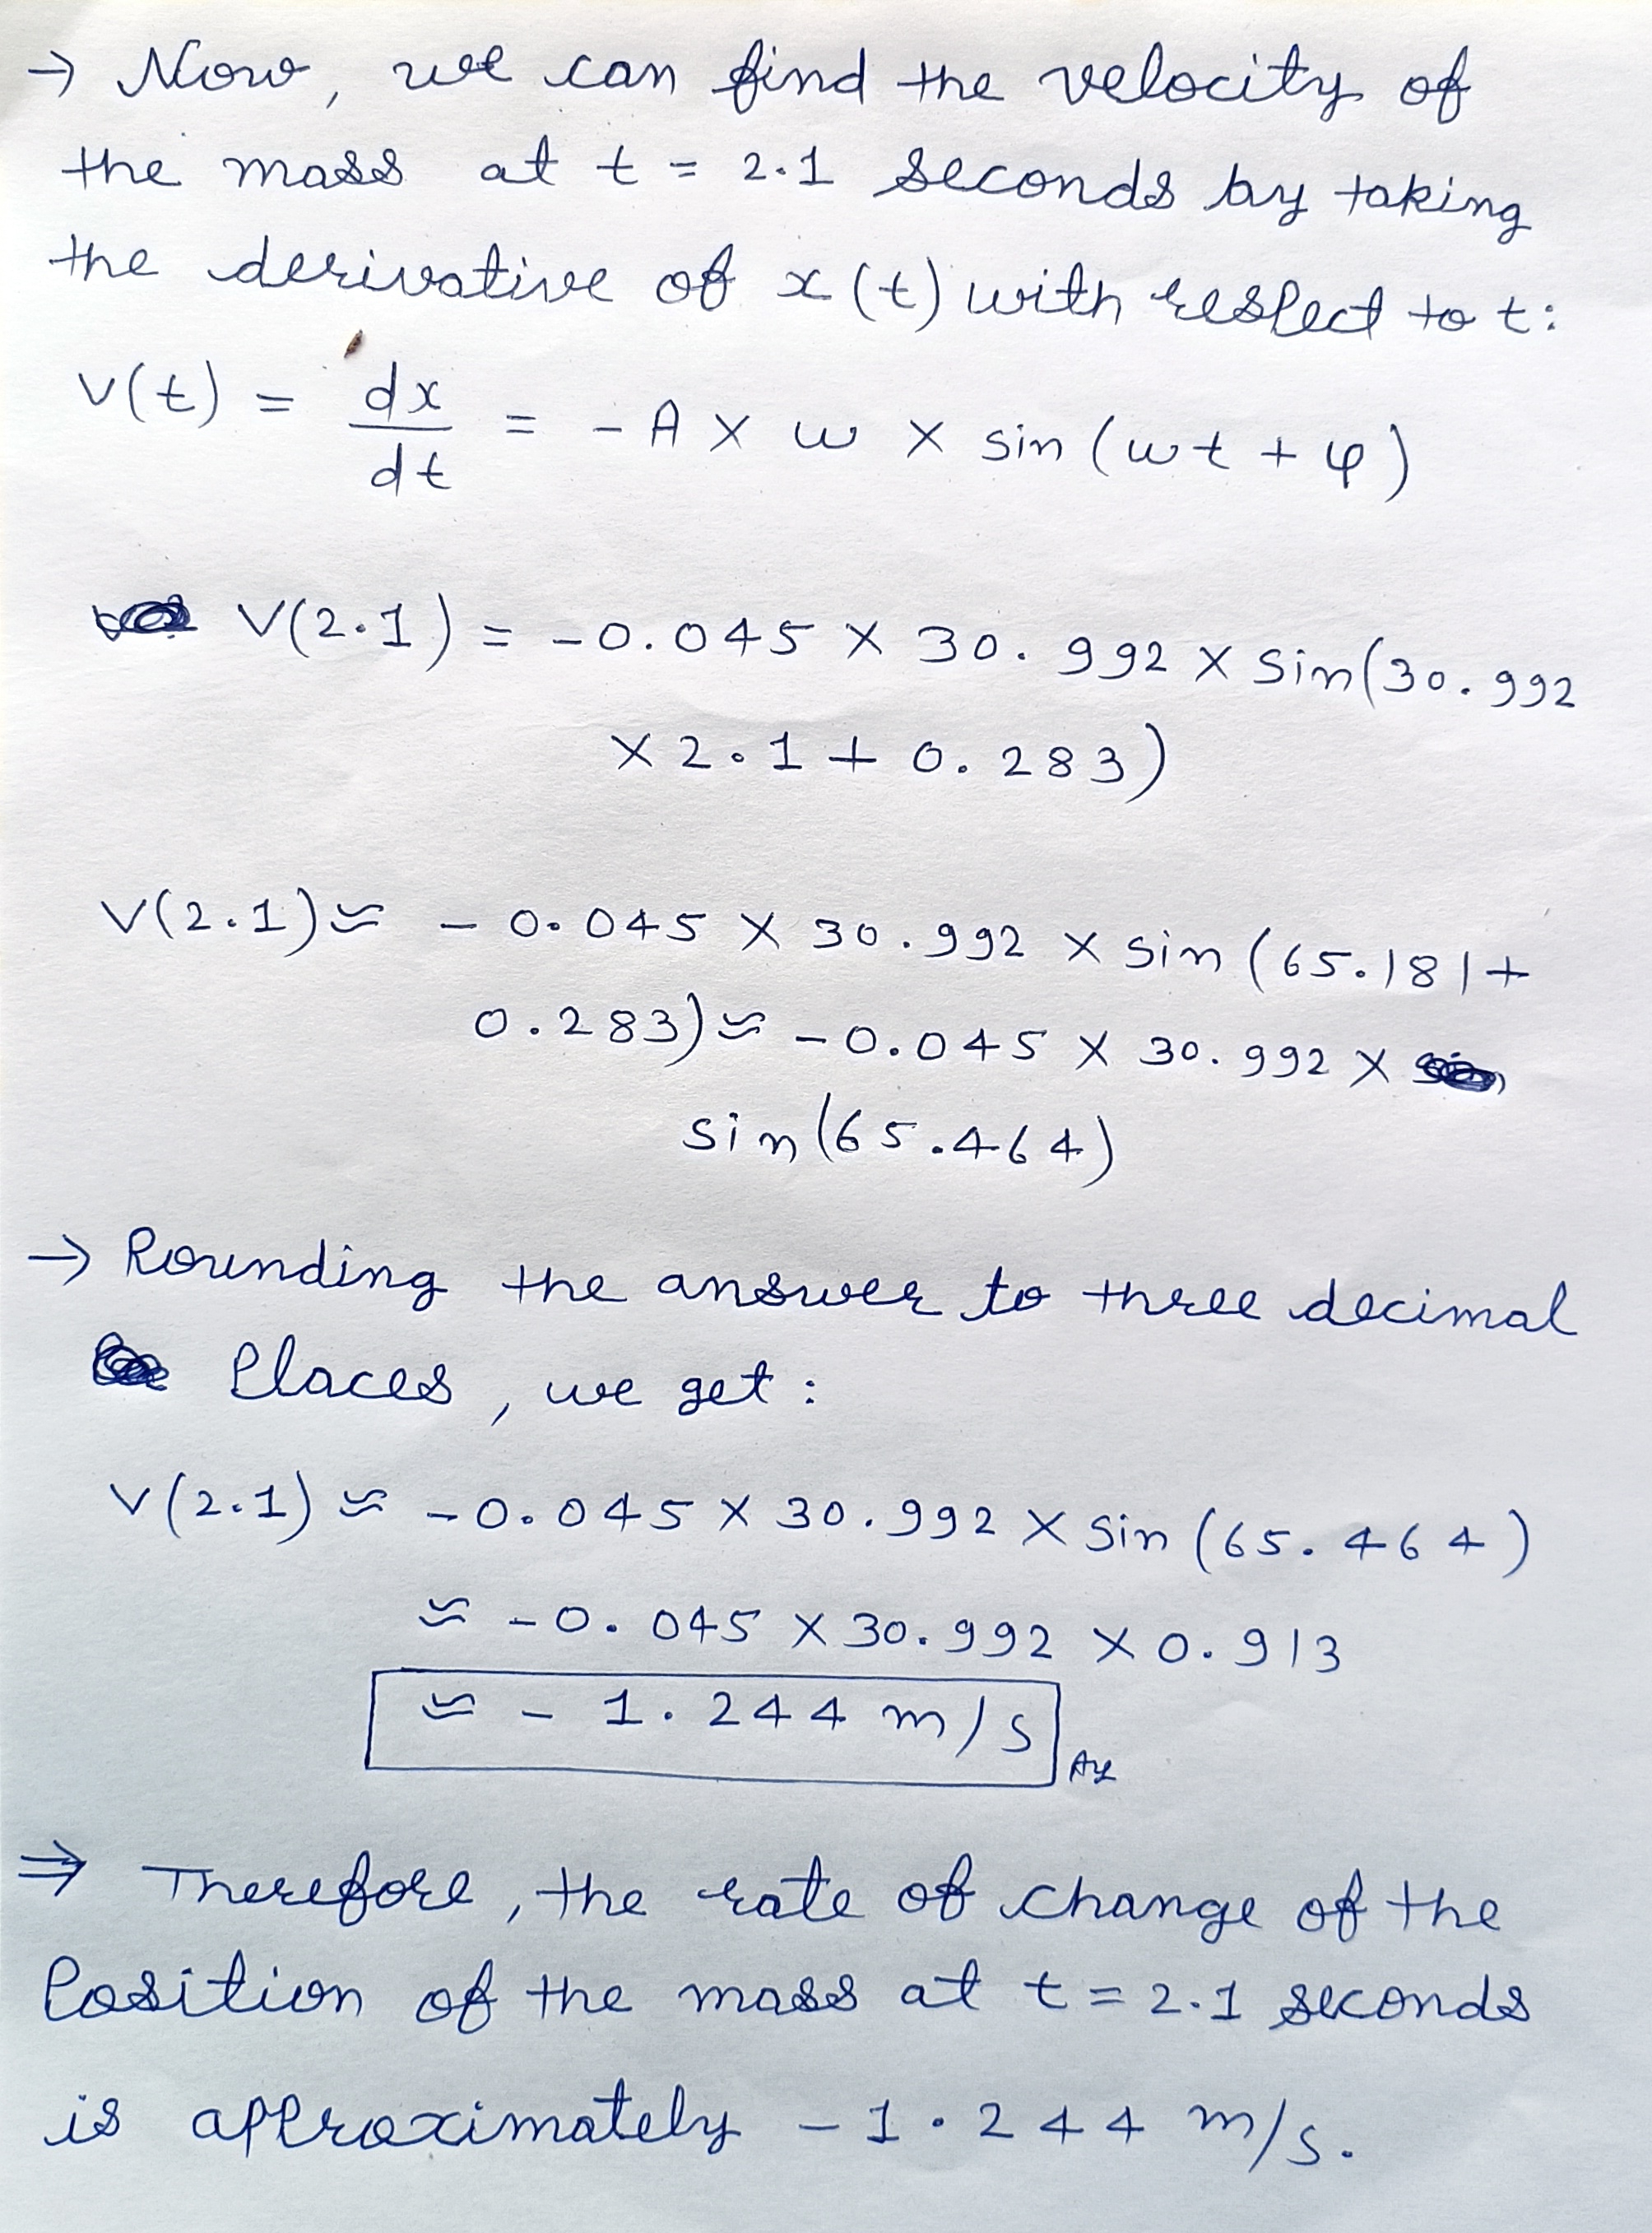 → Now, we can find the velocity of
the mass at t = 2.1 seconds by taking
the derivative of x(t) with respect to t:
V(t) = dx/dt = - A × w × sin(wt + φ)
V(2.1) = -0.045 × 30.992 × sin(30.992
× 2.1 + 0.283)
V(2.1) ≈ - 0.045 × 30.992 × sin(65.181+
0.283) ≈ -0.045 × 30.992 ×
sin(65.464)
→ Rounding the answer to three decimal
Places, we get:
V(2.1) ≈ -0.045 × 30.992 × sin(65.464)
≈ -0.045 × 30.992 × 0.913
≈ - 1.244 m/s
⇒ Therefore, the rate of change of the
Position of the mass at t = 2.1 seconds
is approximately -1.244 m/s.